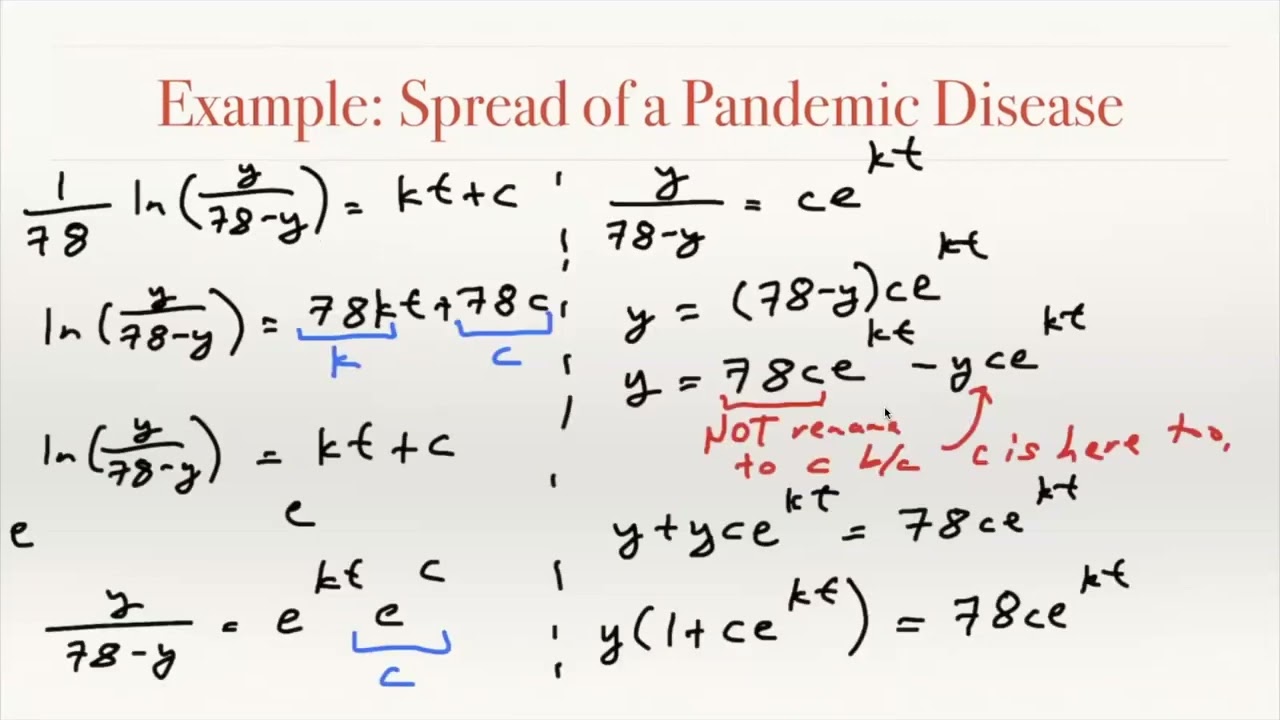 Example: Spread of a Pandemic Disease
1/78 ln(y/(78-y)) = kt+c
ln(y/(78-y)) = 78kt+78c
k c
ln(y/(78-y)) = kt+c
e e
y/(78-y) = e^kt e^c
c
y/(78-y) = ce^kt
y = (78-y)ce^kt
y = 78ce^kt - yce^kt
NOT rename c is here too.
to c b/c
y+yce^kt = 78ce^kt
y(1+ce^kt) = 78ce^kt